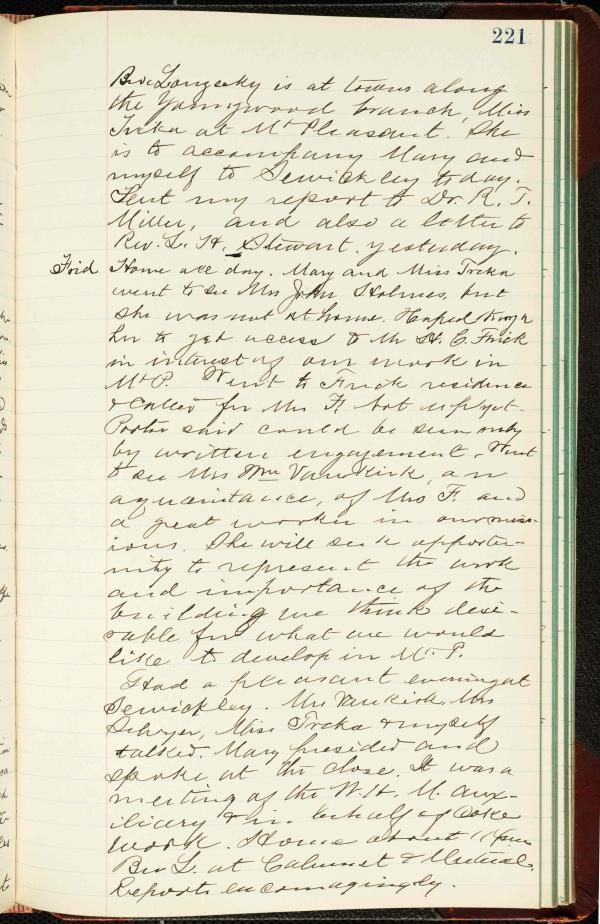 221
Bro. Longecky is at towns along
the Youngwood branch, Miss
Trcka at Mt Pleasant. She
is to accompany Mary and
myself to Sewickley today.
Sent my report to Dr. R. T.
Miller, and also a letter to
Rev. L. H. Stewart. yesterday.
Frid Home all day. Mary and Miss Trcka
went to see Mrs John Holmes, but
she was not at home. Hoped through
her to get access to Mr H. C. Frick
in interest of our work in
Mt P. Went to Frick residence
& called for Mrs F. not up yet.
Porter said could be seen only
by written engagement. Went
to see Mrs Wm Vankirk, an
aquaintance, of Mrs F. and
a great worker in our miss-
ions. She will seek opportu-
nity to represent the work
and importance of the
building we think desi-
rable for what we would
like to develop in Mt. P.
Had a pleasant evening at
Sewickley. Mrs Vankirk, Mrs
Miss Trcka & myself
talked. Mary presided and
spoke at the close. It was a
meeting of the W. H. M. Aux-
iliary & in behalf of Coke
work. Home about 11 pm
Bro L. at Calumet & Mutual.
Reports encouragingly.